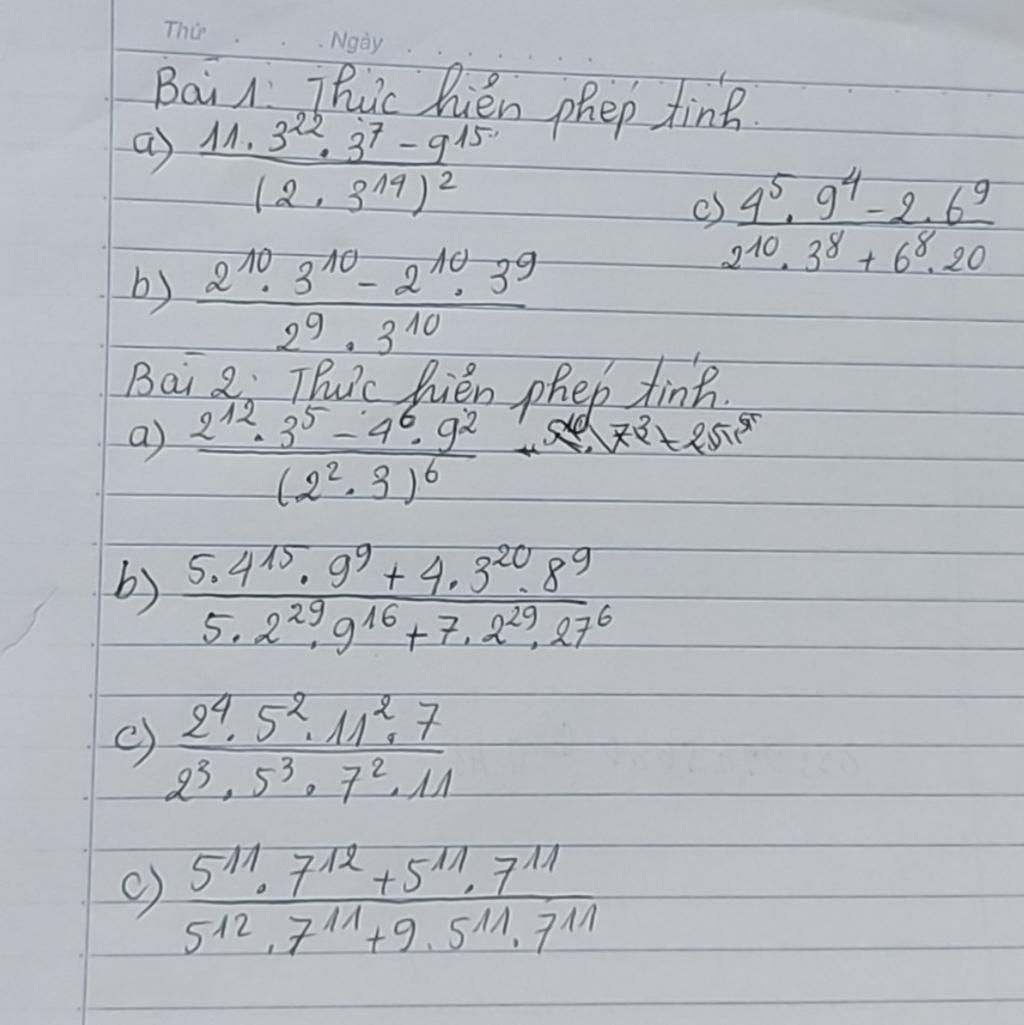 Thứ . . . Ngày . . . . . .
Bài 1: Thực hiện phép tính.
a) \frac{11 . 3^{22} . 3^7 - 9^{15}}{(2 . 3^{14})^2}
c) \frac{4^5 . 9^4 - 2 . 6^9}{2^{10} . 3^8 + 6^8 . 20}
b) \frac{2^{10} . 3^{10} - 2^{10} . 3^9}{2^9 . 3^{10}}
Bài 2: Thực hiện phép tính.
a) \frac{2^{12} . 3^5 - 4^6 . 9^2}{(2^2 . 3)^6}
b) \frac{5 . 4^{15} . 9^9 + 4 . 3^{20} . 8^9}{5 . 2^{29} . 9^{16} + 7 . 2^{29} . 27^6}
c) \frac{2^4 . 5^2 . 11^2 . 7}{2^3 . 5^3 . 7^2 . 11}
c) \frac{5^{11} . 7^{12} + 5^{11} . 7^{11}}{5^{12} . 7^{11} + 9 . 5^{11} . 7^{11}}